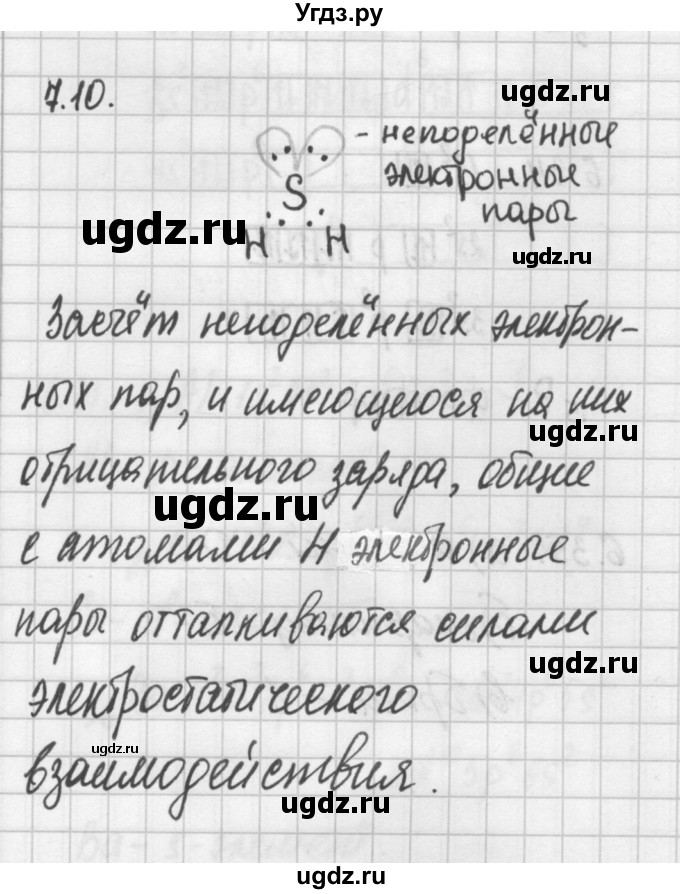 Угдз.ру
7.10.
ugdz.ru
- неподелённые
электронные
пары
S
H H
ugdz.ru
ugdz.ru
Засчёт неподелённых электрон-
ных пар, и имеющегося на них
ugdz.ru
отрицательного заряда, общие
ugdz.ru
с атомами H электронные
пары отталкиваются силами
ugdz.ru
электростатического
ugdz.ru
взаимодействия.
ugdz.ru